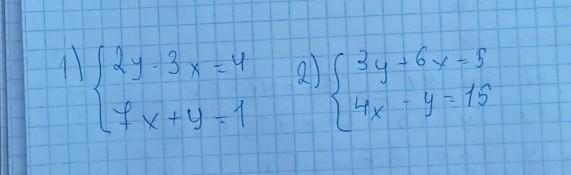 1) { 2y - 3x = 4
7x + y = 1
2) { 3y + 6x = 5
4x - y = 15